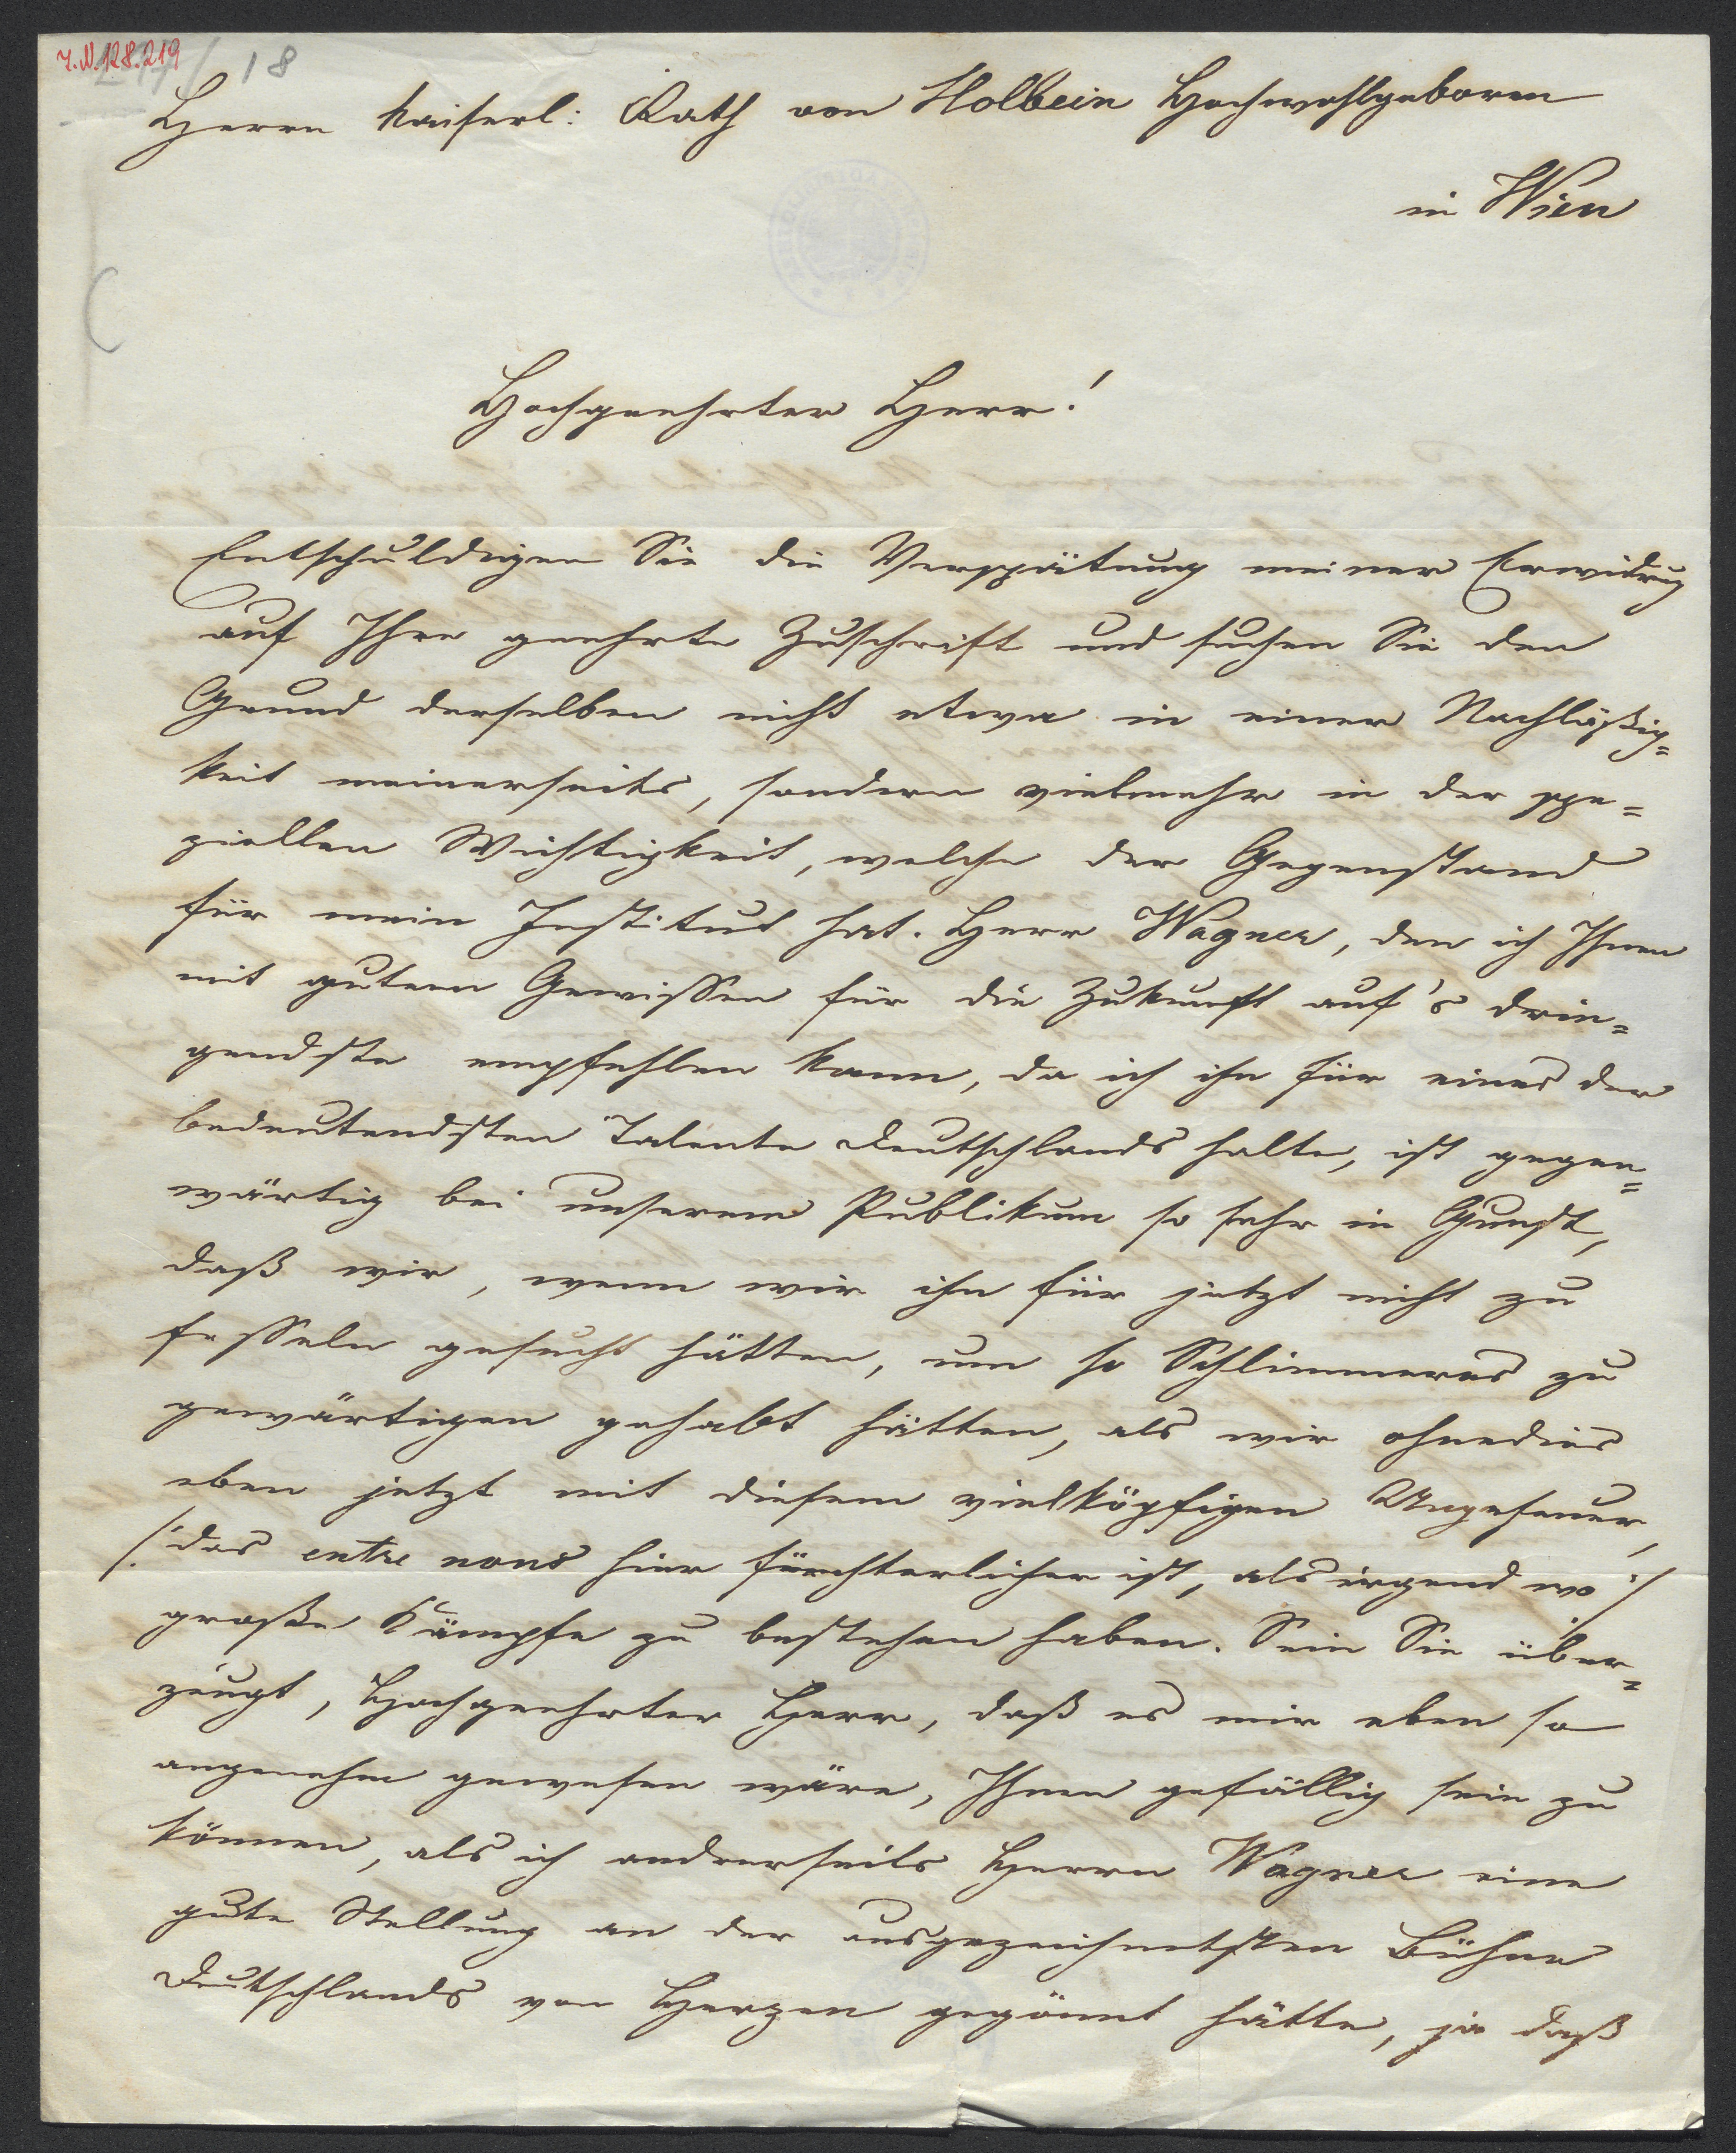 I.N.128.219
18
Herrn kaiserl: Rath von Holbein Hochwohlgeboren
in Wien
Hochgeehrter Herr!
Entschuldigen Sie die Verspätung meiner Erwidrung
auf Ihre geehrte Zuschrift und suchen Sie den
Grund derselben nicht etwa in einer Nachläßig=
keit meinerseits, sondern vielmehr in der spe=
ziellen Wichtigkeit, welche der Gegenstand
für mein Institut hat. Herr Wagner, den ich Ihnen
mit gutem Gewissen für die Zukunft auf's drin=
gendste empfehlen kann, da ich ihn für eines der
bedeutendsten Talente Deutschlands halte, ist gegen=
wärtig bei unserem Publikum so sehr in Gunst,
daß wir, wenn wir ihn für jetzt nicht zu
fesseln gesucht hätten, um so Schlimmeres zu
gewärtigen gehabt hätten, als wir ohnedies
eben jetzt mit diesem vielköpfigen Ungeheuer,
/: das entre nous hier fürchterlicher ist, als irgend wo :/
große Kämpfe zu bestehen haben. Sein Sie über=
zeugt, Hochgeehrter Herr, daß es mir eben so
angenehm gewesen wäre, Ihnen gefällig sein zu
können, als ich andrerseits Herrn Wagner eine
gute Stellung an der ausgezeichnetsten Bühne
Deutschlands von Herzen gegönnt hätte, ja daß